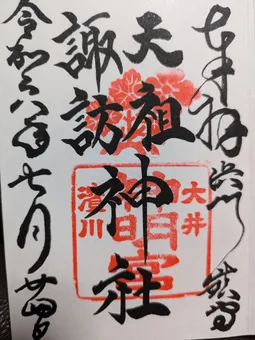 奉拝
天祖
諏訪
神社
大井
神明宮
濱川
令和六年七月廿四日